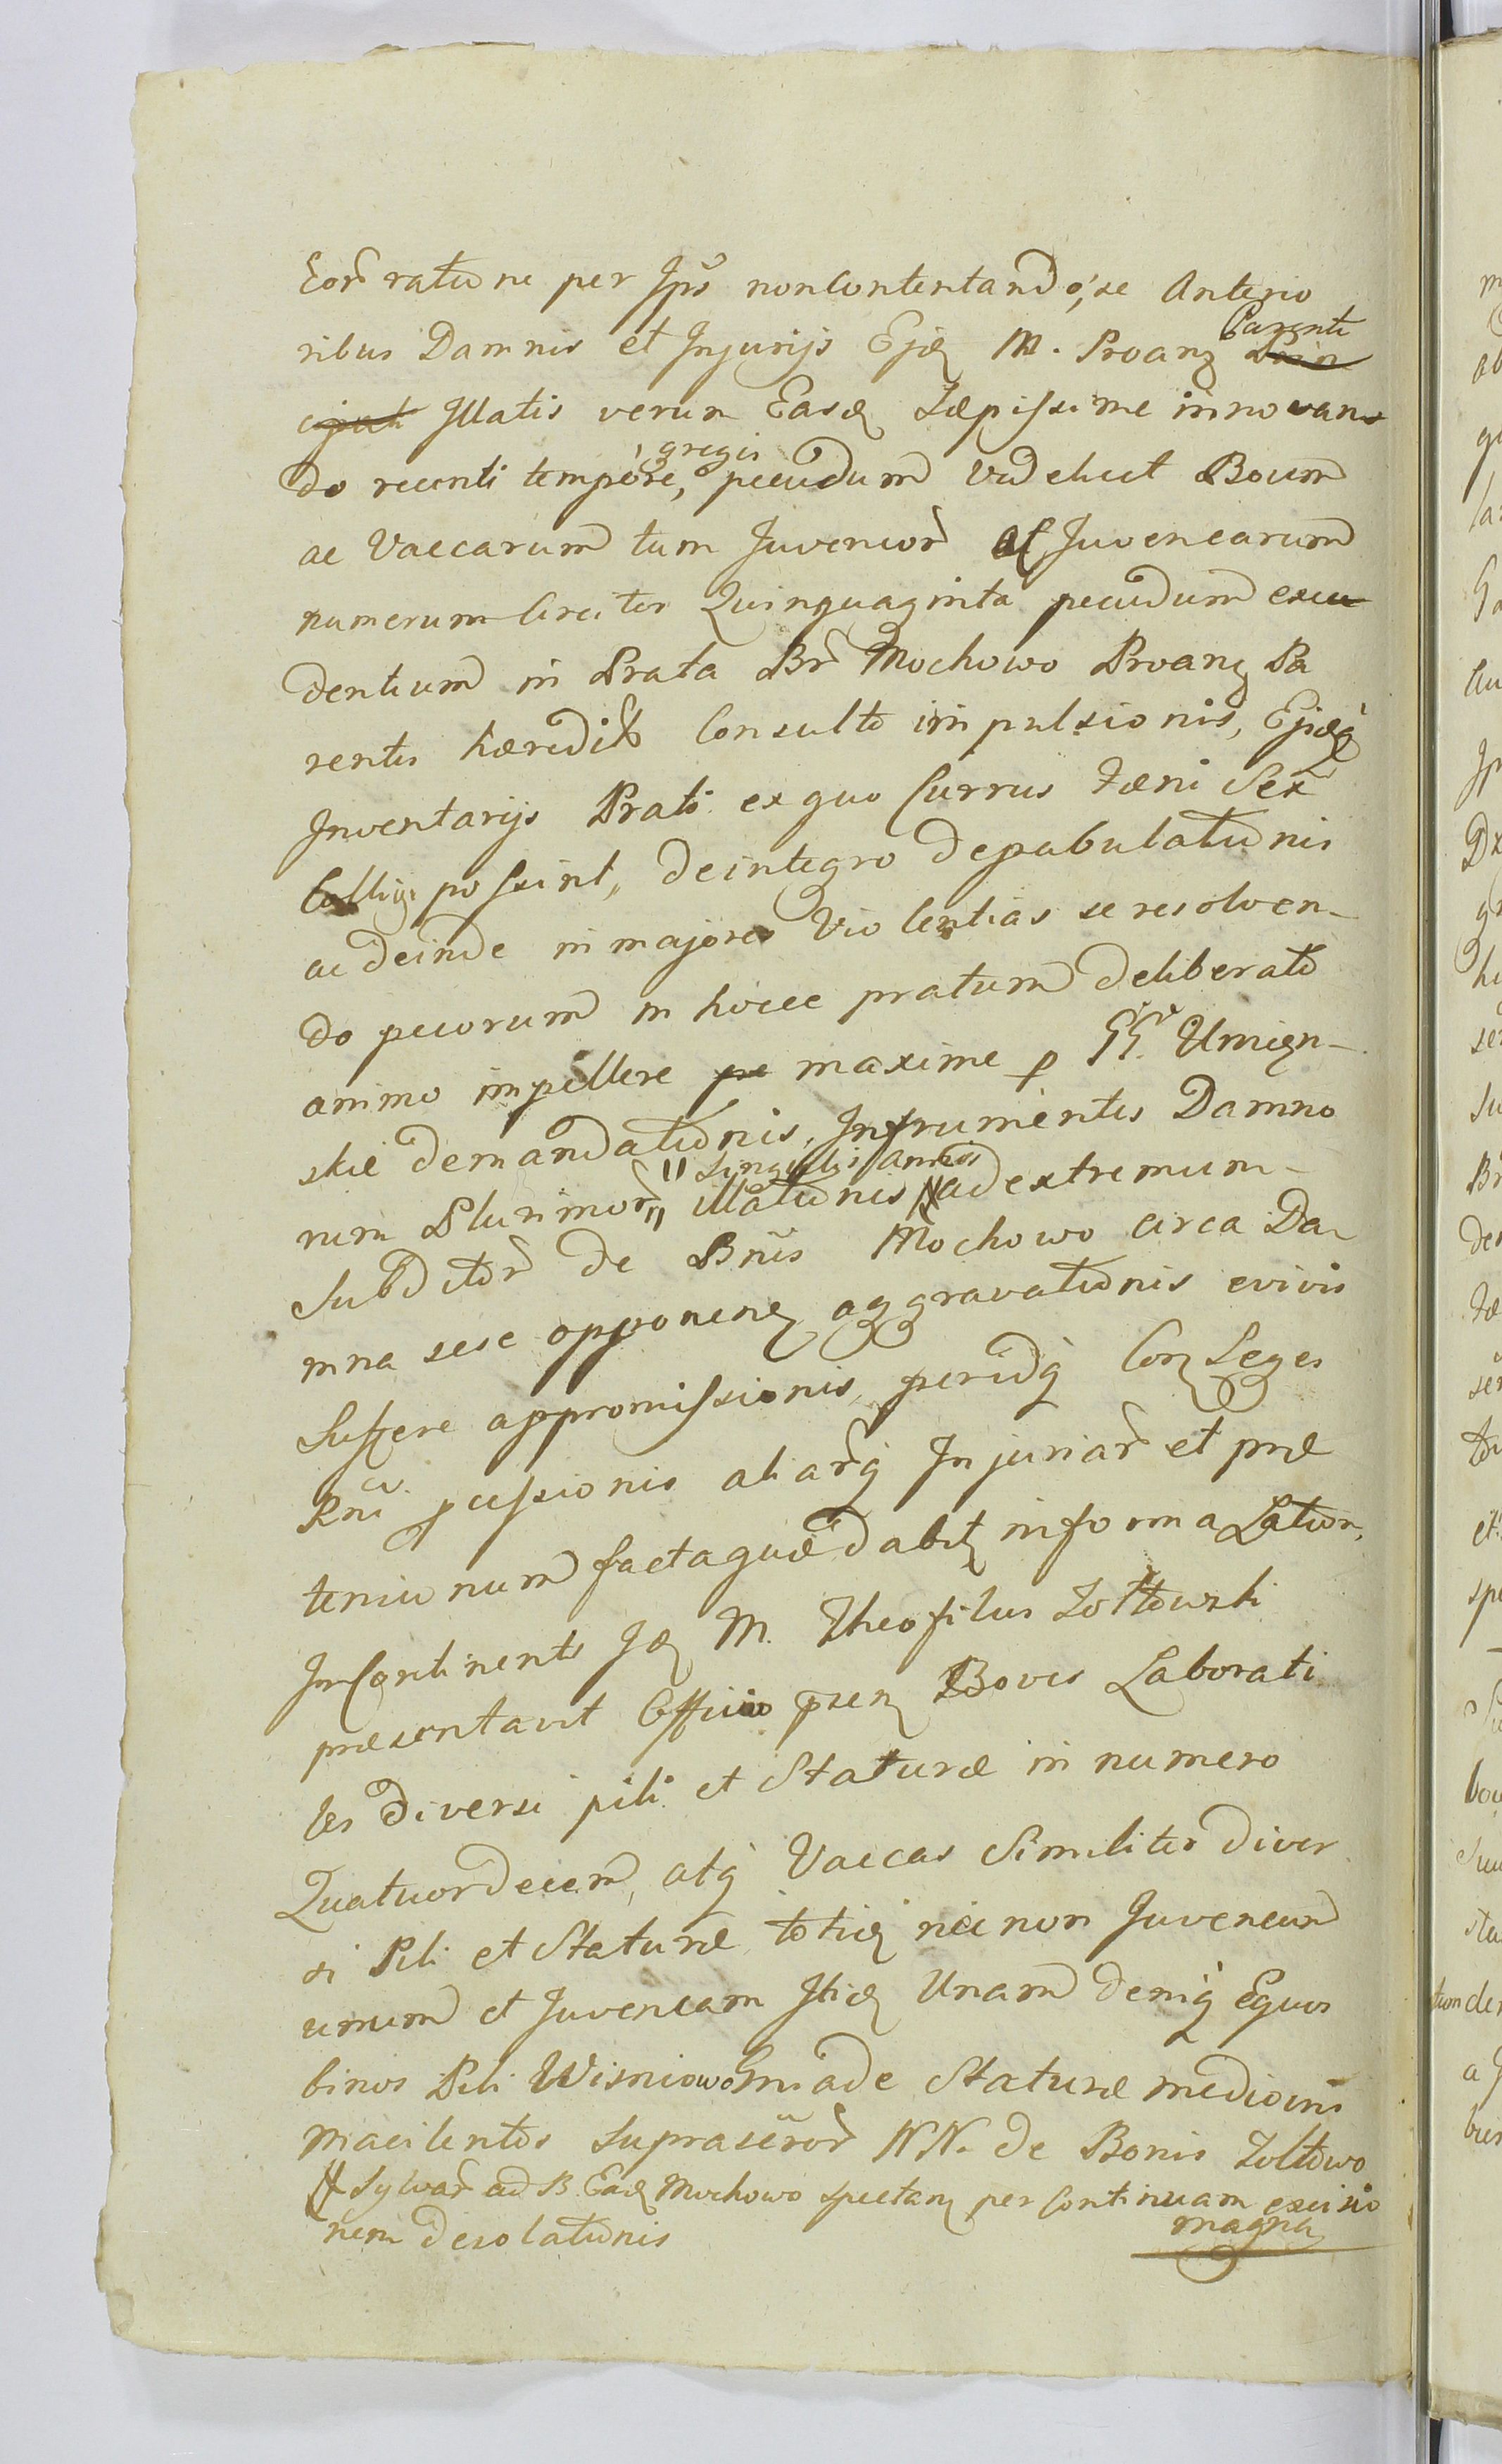 Eorũ ratione per Ips̃ non Contentando se Anterio
ribus Damnis et Injurijs Ejq M. Proang Parenti
Illatis verum Easq Sæpissime innovan
do recenti tempore, gregis pecudum videlicet Boum
ac Vaccarum tum Juvencor̃ ac Juvencarum
numerum Circiter Quinquaginta pecudum exce
dentium in Prata Br̃ Mochowo Proang Pa
rentis hæredit Consulto impulsionis, Ejdq
Inventarijs Prati ex quo Currus Fæni Sex
Colligi possint, de integro depabulationis
ac deinde in majores Violentias se resolven-
do pecorum in hocce pratum deliberato
animo impellere maxime p GG. Umięn-
skie demandationis, Instrumentis Damno
rum Plurimor̃ // singulis annis illationis # ad extremum
Subditor̃ de Bnis Mochowo circa Da-
mna sese opponeng aggravationis e vivis
Sufferre appromissionis, peridq Cong Leges
Rni pcussionis aliarq Injuriar̃ et præ
tensionum facta quæ dabit in forma Lation.
In Continenti Iq M. Theofilus Zołtowski
præsentavit Officio præng Boves Laborati
les diversi pili et Staturæ in numero
Quatuordecem, atq Vaccas Similiter diver
si Pili et Staturæ totiq nec non Juvencum
unum et Juvencam Itiq Unam deniq Equos
binos Pili Wisniowo Gniade Staturæ mediocris
macilentos Suprascr̃or̃ NN. de Bonis Zołtowo
# Sylvar̃ ad B. Eadq Mochowo spectang per Continuam excisio
nem desolationis
magna